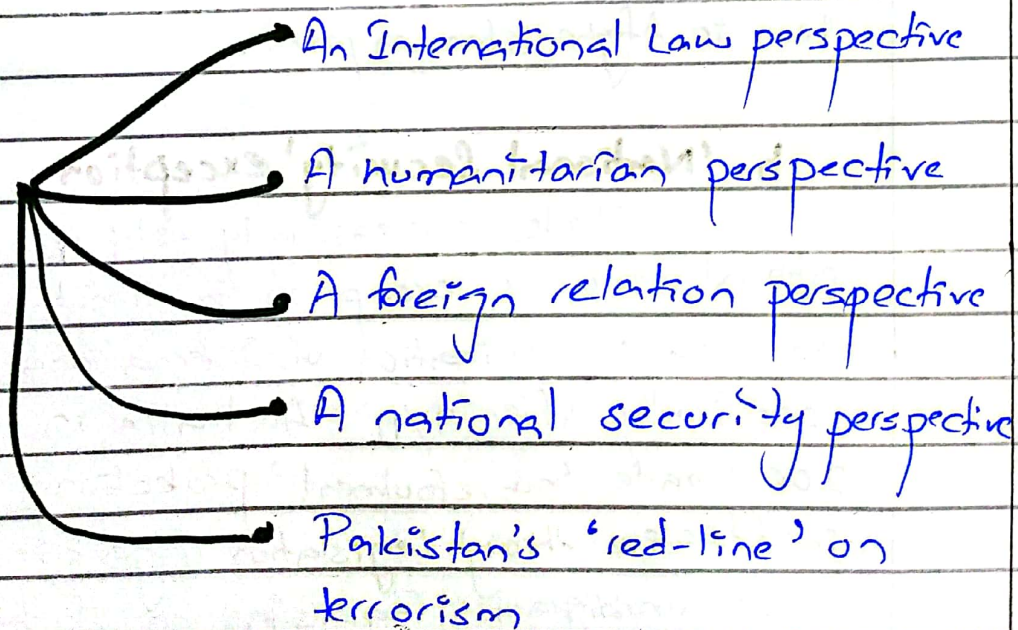 An International Law perspective
A humanitarian perspective
A foreign relation perspective
A national security perspective
Pakistan's 'red-line' on
terrorism